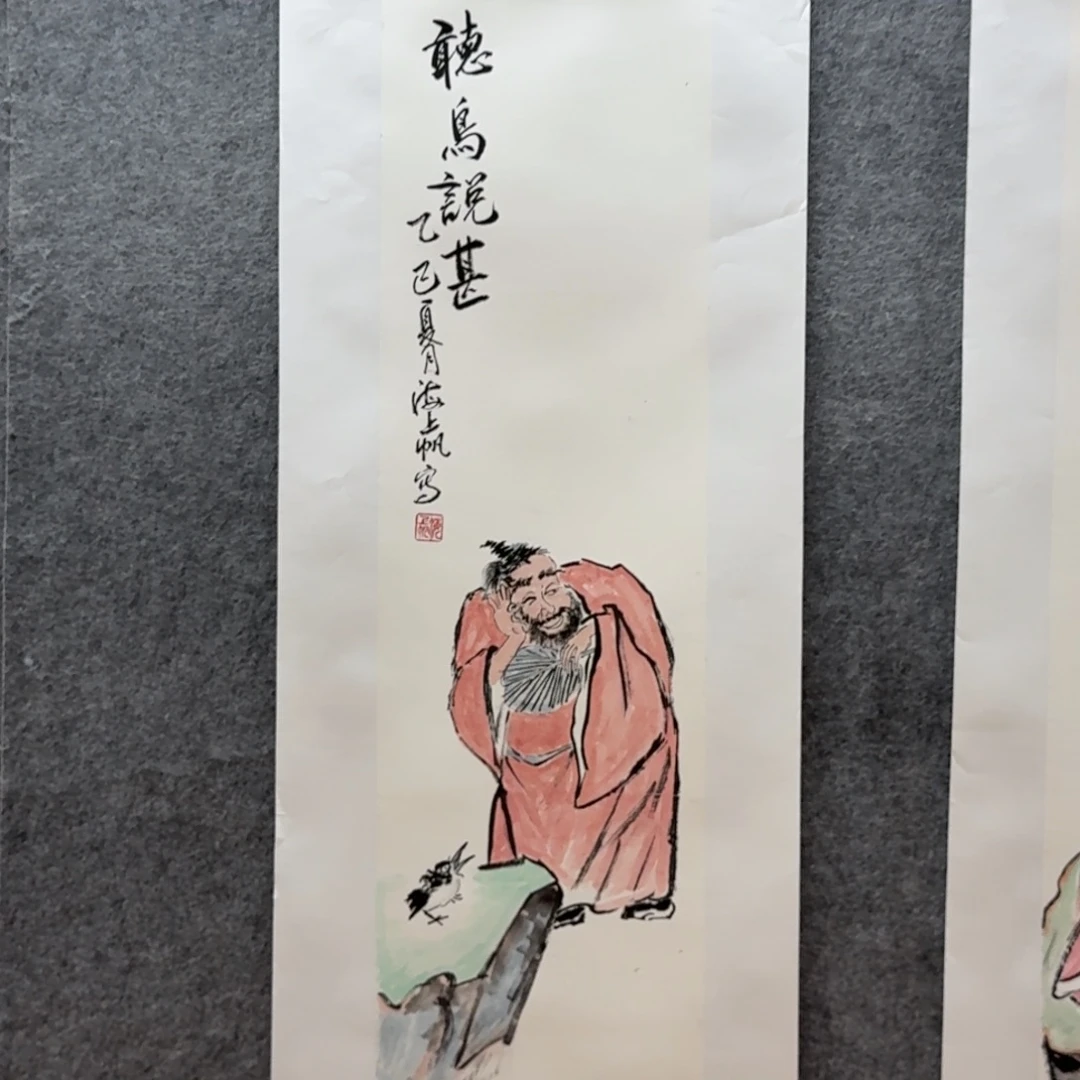 聽鳥說甚
乙巳夏月海上帆寫